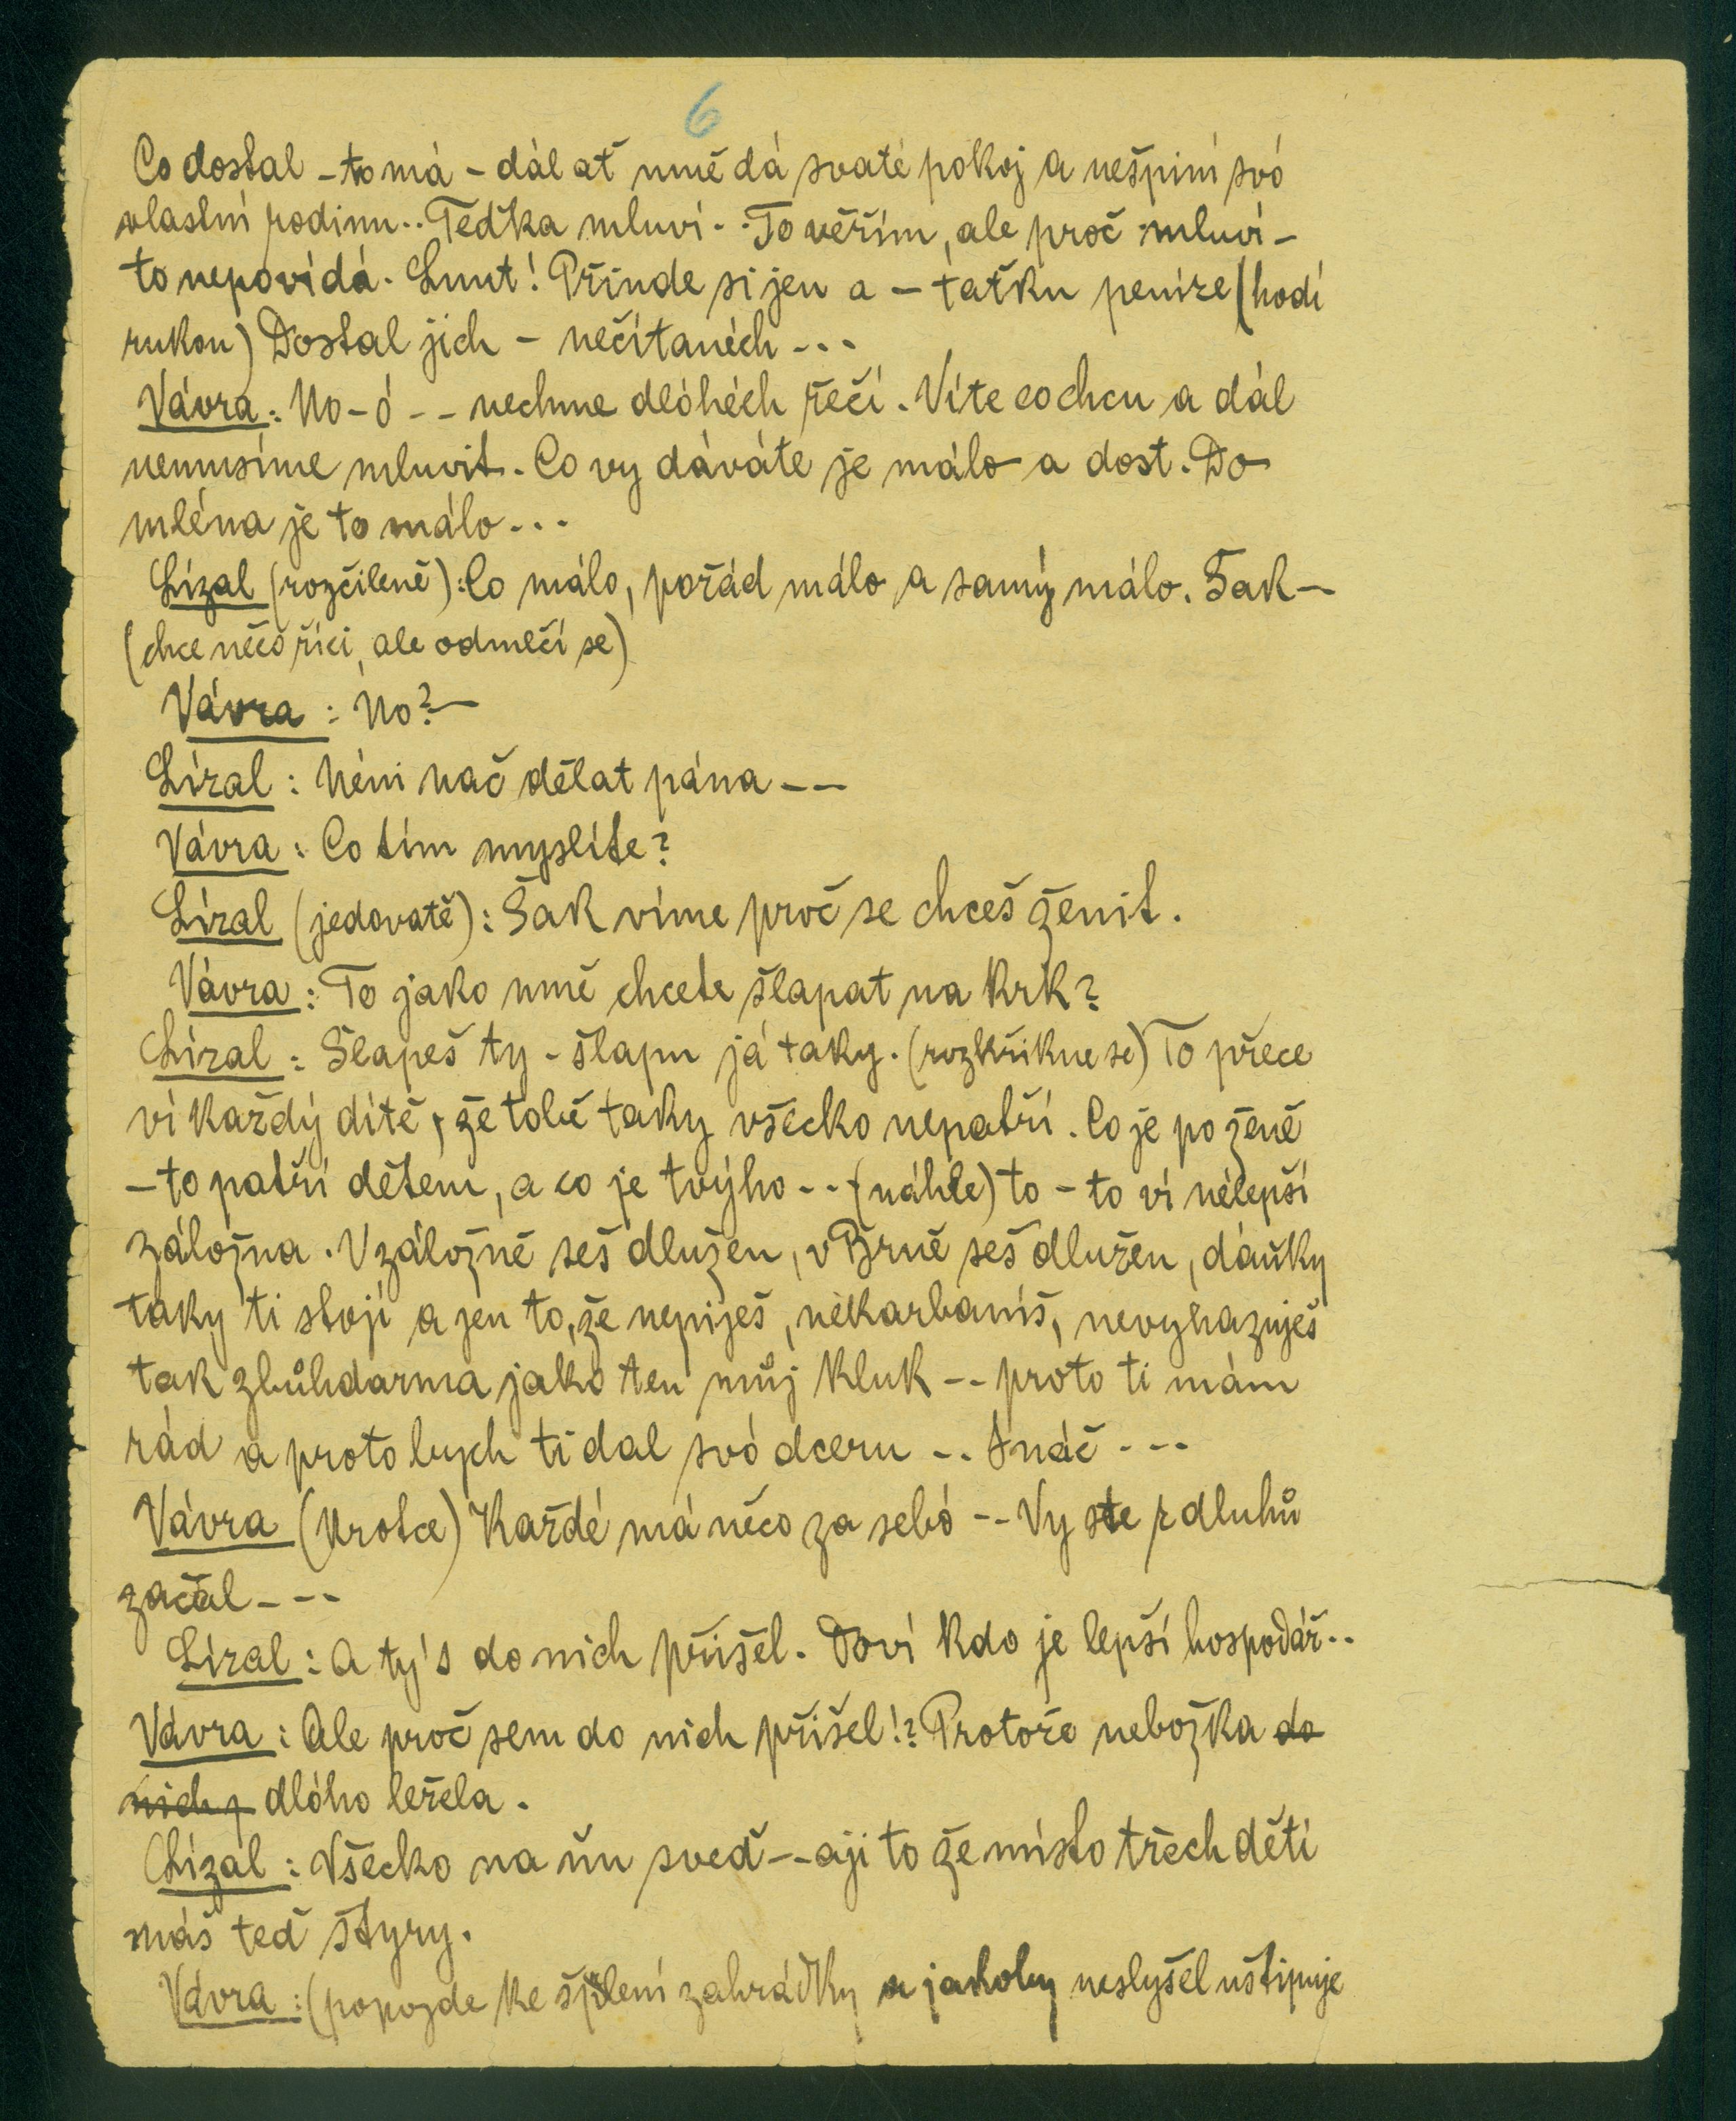 6
Co dostal – to má – dál ať mně dá svaté pokoj a nešpiní svó
vlastní rodinu.. Teďka mluví.. To věřím, ale proč mluví –
to nepovídá. Lump! Přinde si jen a – taťku peníze (hodí
rukou) Dostal jich – nečítanéch ...
Vávra: No–ó -- nechme dlóhéch řečí. Víte co chcu a dál
nemusíme mluvit. Co vy dáváte je málo a dost. Do
mléna je to málo...
Lízal (rozčileně): Co málo, pořád málo a samý málo. Šak –
(chce něco říci, ale odmlčí se)
Vávra: No? –
Lízal: Néni nač dělat pána – –
Vávra: Co tím myslíte?
Lízal (jedovatě): Šak víme proč se chceš ženit.
Vávra: To jako mně chcete šlapat na krk?
Lízal: Šlapeš ty – šlapu já taky. (rozkřikne se) To přece
ví každý dítě, že tobě taky všecko nepatří. Co je po ženě
– to patří dětem, a co je tvýho -- (náhle) to – to ví nélepší
záložna. V záložně seš dlužen, v Brně seš dlužen, daňky
taky ti stojí a jen to, že nepiješ, nekarbaníš, nevyhazuješ
tak zbůhdarma jako ten můj kluk -- proto ti mám
rád a proto bych ti dal svó dceru -- Snáč ---
Vávra (krotce) Každé má něco za sebó -- Vy ste z dluhů
začal – – –
Lízal: A ty's do nich přišel. Doví kdo je lepší hospodář..
Vávra: Ale proč sem do nich přišel!? Protože nebožka do
nich p dlóho ležela.
Lízal: Všecko na ňu sveď -- aji to že místo třech dětí
máš teď štyry.
Vávra: (popojde ke zahrádky a jakoby neslyšel uštipuje